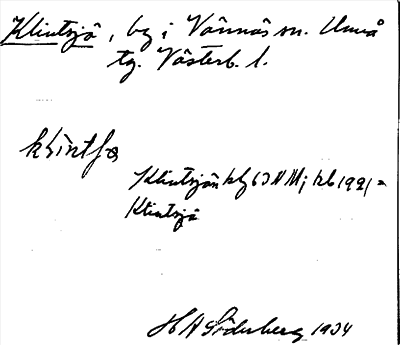 Klintsjö, by i Vännäs sn. Umeå
tg. Västerb. l.
klintſø
Klintsjön kbg 63 NM; kb 1921 =
Klintsjö
H A Söderberg 1934